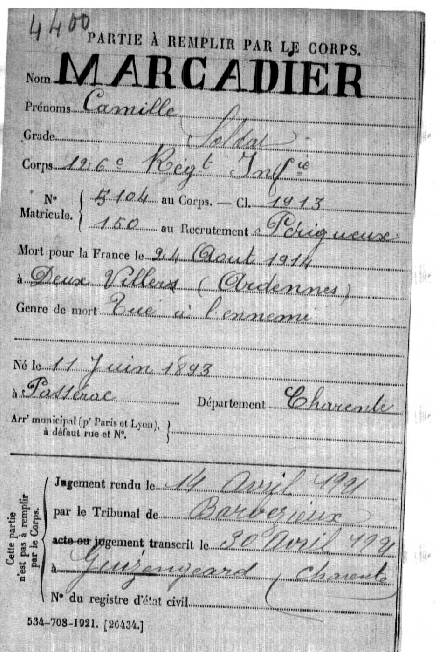 4400
PARTIE À REMPLIR PAR LE CORPS.
Nom MARCADIER
Prénoms Camille
Grade Soldat
Corps 126e Régt Infie
N° Matricule. { 5104 au Corps. — Cl. 1913
150 au Recrutement Périgueux
Mort pour la France le 24 Aout 1914
à Deux Villers (Ardennes)
Genre de mort Tué à l'ennemi
Né le 11 Juin 1893
à Passérac Département Charente
Arrt municipal (pr Paris et Lyon), à défaut rue et N°. {
Cette partie n'est pas à remplir par le Corps.
Jugement rendu le 14 Avril 1921
par le Tribunal de Barbezieux
acte ou jugement transcrit le 30 avril 1921
à Guizengeard (Charente
N° du registre d'état civil
534-708-1921. [26434.]